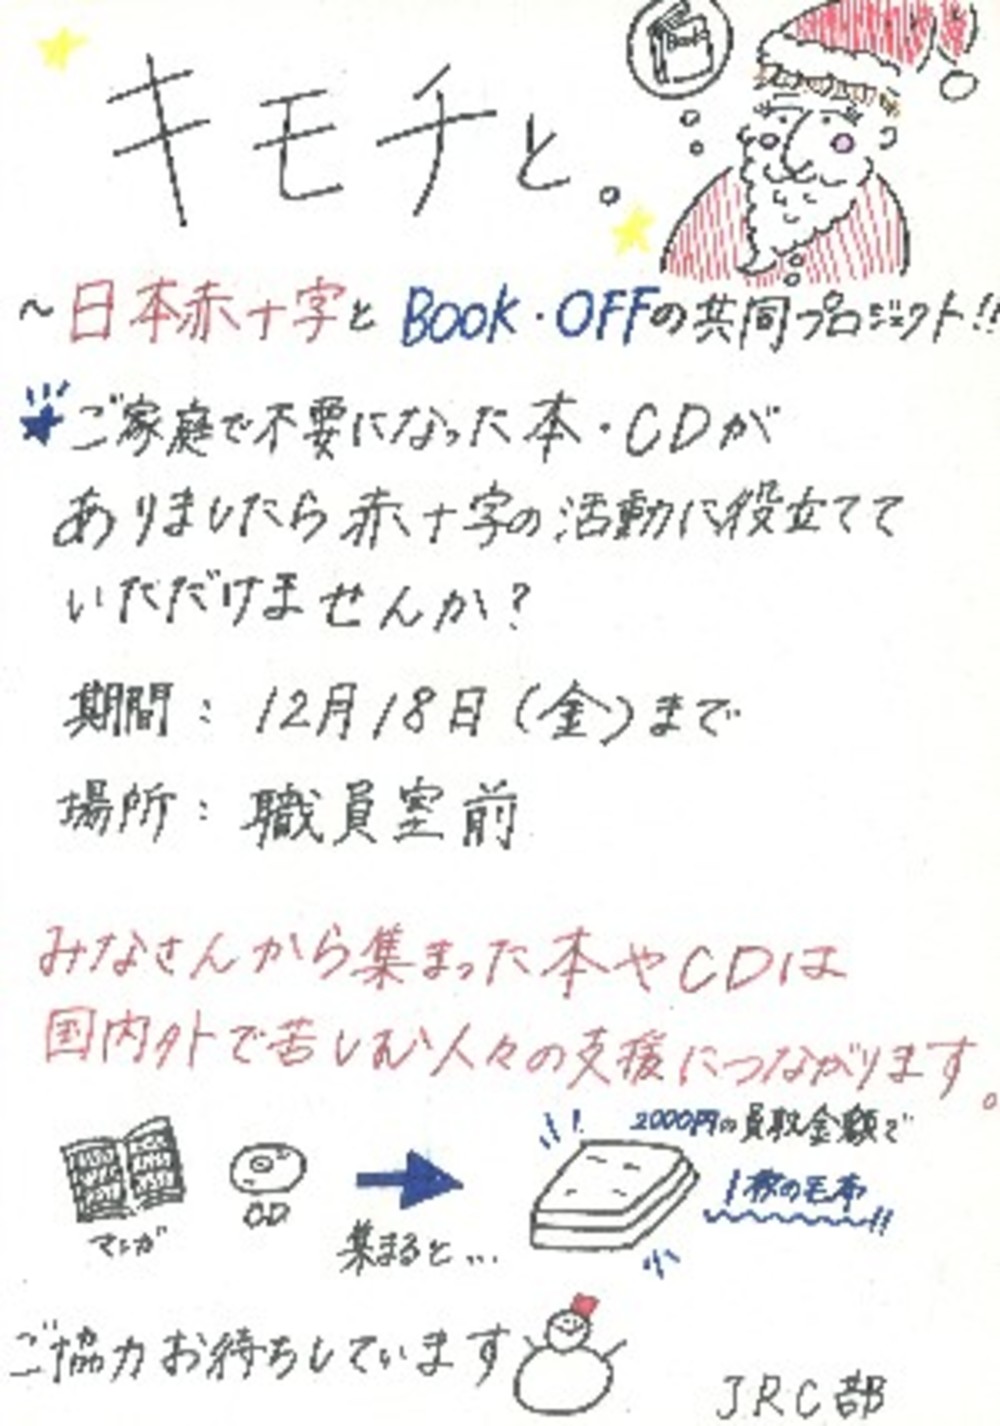 Book
キモチと。
~日本赤十字とBOOK・OFFの共同プロジェクト!!
ご家庭で不要になった本・CDが
ありましたら赤十字の活動に役立てて
いただけませんか?
期間: 12月18日(金)まで
場所: 職員室前
みなさんから集まった本やCDは
国内外で苦しむ人々の支援につながります。
2000円の買取金額で
1枚の毛布!!
マンガ
CD
集まると...
ご協力お待ちしています
JRC部